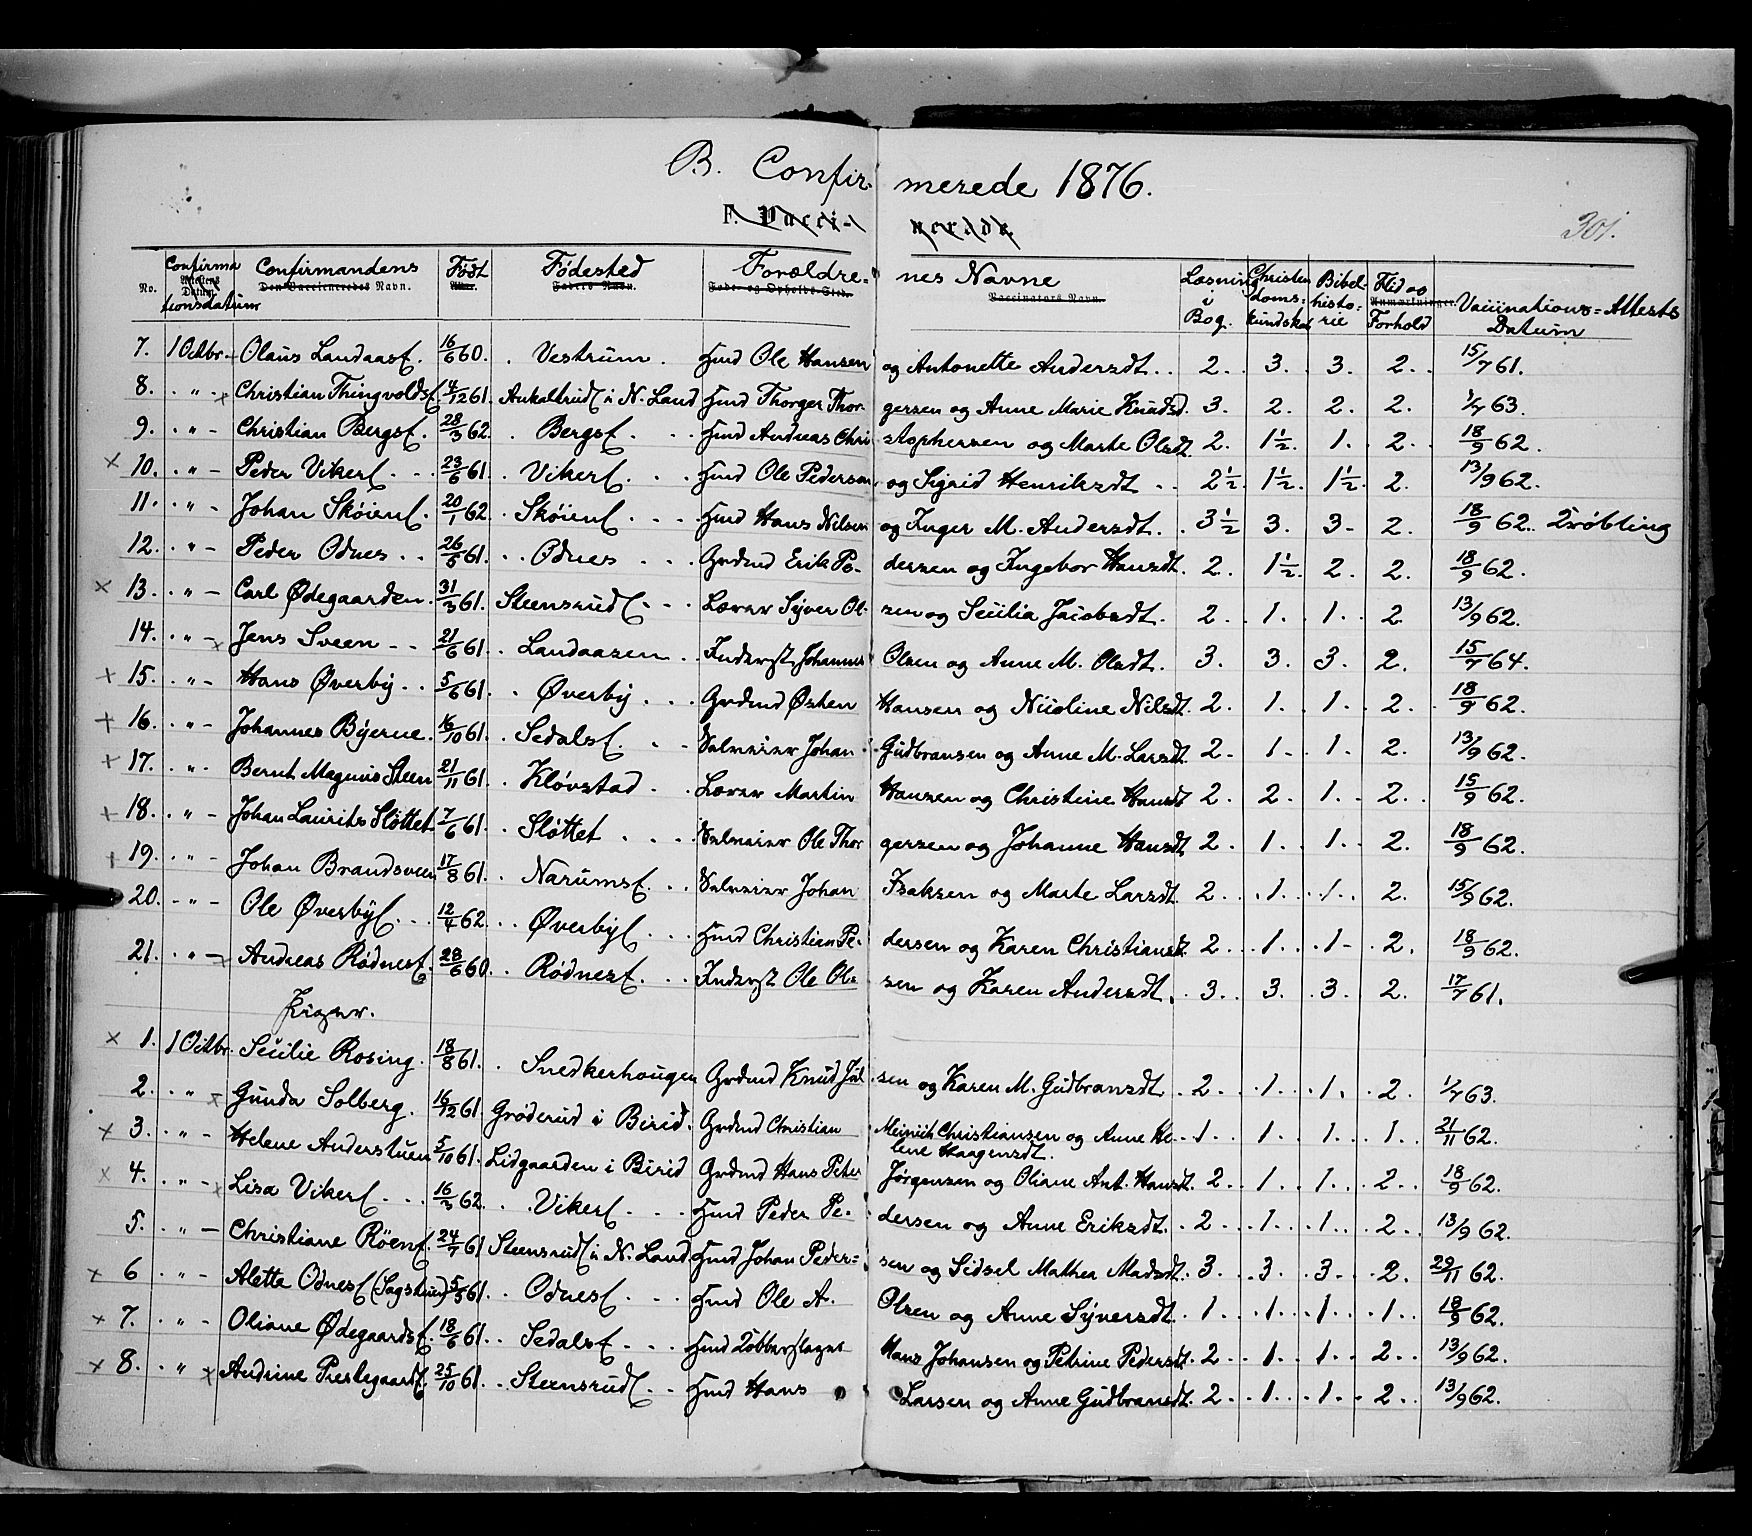 B. Confirmerede 1876.
F. Vaccinerede
301.
No. Confirmationsdatum Attestens Datum. Confirmandens Den Vaccineredes Navn. Født Alder. Fødested Faders Navn. Forældrenes Navne Føde- og Opholds-Sted. Vaccinators Navn. Læsning i Bog. Christendomskundskab Bibelhistorie Flid og Forhold Anmærkninger. Vaccinations-Attests Datum
7. 1 Octbr. Olaus Landaase. 16/6 60. Vestrum. Hmd Ole Hansen og Antonette Andersdt. 2. 3. 3. 2. 15/7 61.
8. " Christian Thingvoldse. 4/12 61. Ankaltrude i N. Land Hmd Thorger Thorgersen og Anne Marie Knudsd. 3. 2. 2. 2. 1/7 63.
9. " Christian Bergse. 28/3 62. Bergse. Hmd Andreas Christophersen og Marte Olsdt. 2. 1½. 1. 2. 18/9 62.
x 10. " Peder Vikere. 23/6 61. Vikere. Hmd Ole Pedersen og Sigrid Henriksdt 2½. 1½. 1½. 2. 13/9 62.
11. " Johan Skøiene. 20/1 62. Skøiene. Hmd Hans Nilsen og Inger M. Andersdt. 3½ 3. 3. 2. 18/9 62. Trøbling
12. " Peder Odnes. 26/5 61. Odnes Grdmd Erik Pedersen og Ingebor Hansdt. 2. 1½. 2. 2. 18/9 62.
x 13. " Carl Ødegaarden. 31/3 61. Steensrude. Lærer Syver Olsen og Secilia Jacobsdt. 2. 1. 1. 2. 13/9 62.
14. " x Jens Sveen 21/6 61. Landaasen Inderst Johannes Olsen og Anne M. Olsdt. 3. 3. 3. 2. 15/7 64.
x 15. " Hans Øverby. 5/6 61. Øverby Grdmd Østen Hansen og Nicoline Nilsdt. 2. 1. 1. 2. 18/9 62.
x 16. " Johannes Byerne. 16/10 61. Sedalse. Selveier Johan Gudbransen og Anne M. Larsdt. 2. 1. 1. 2. 13/9 62.
x 17. " Bernt Magnus Steen 21/11 61. Kløvstad Lærer Martin Hansen og Christine Hansdt 2. 2. 1. 2. 15/9 62.
x 18. " Johan Laurits Sløttet 7/6 61. Sløttet Selveier Ole Thorgersen og Johanne Hansdt. 2. 1. 1. 2. 18/9 62.
x 19. " Johan Brandsveen 17/8 61. Narumse. Selveier Johan Isaksen og Marte Larsdt. 2. 1. 1. 2. 15/9 62.
20. " Ole Øverbye. 12/4 62. Øverbye Hmd Christian Pedersen og Karen Christiansdt. 2. 1. 1. 2. 18/9 62.
21. " x Andreas Rødnese. 28/6 60. Rødnese. Inderst Ole Olsen og Karen Andersdt. 3. 3. 3. 2. 17/7 61.
Piger.
x 1. 1 Octbr. Secilie Rosing. 18/8 61. Snedkerhougen Grdmd Knud Julsen og Karen M. Gudbransdt 2. 1. 1. 2. 1/7 63.
2. " x Gunda Solberg. 16/12 61. Grøderud i Birid. Grdmd Christian Meinich Christiansen og Anne Helene Haagensdt. 1. 1. 1. 1. 21/11 62.
x 3. " Helene Anderstuen 5/10 61. Lidgaarden i Birid Grdmd Hans Peter Jørgensen og Oliane Ant. Hansdt. 2. 1. 1. 2. 18/9 62.
x 4. " x Lisa Vikere 16/3 62. Vikere. Hmd Peder Pedersen og Anne Eriksdt. 2. 1. 1. 2. 13/9 62.
5. " Christiane Røene. 24/7 61 Steensrude i N. Land. Hmd Johan Pedersen og Sidsel Mathea Madsdt. 3. 3. 3. 2. 29/11 62.
x 6 " Aletta Odnese (Sagstuen) 5/5 61. Odnese. Hmd Ole A. Olsen og Anne Syversdt. 1. 1. 1. 1. 18/9 62.
x 7. " Oliane Ødegaardse. 18/6 61. Sedalse. Hmd Kobberslager Hans Johansen og Petrine Pedersdt. 2. 1. 1. 2. 13/9 62.
x 8. " x Andrine Prestegaarde. 25/10 61. Steensrude. Hmd Hans Larsen og Anne Gudbransdt. 2. 1. 1. 2. 13/9 62.